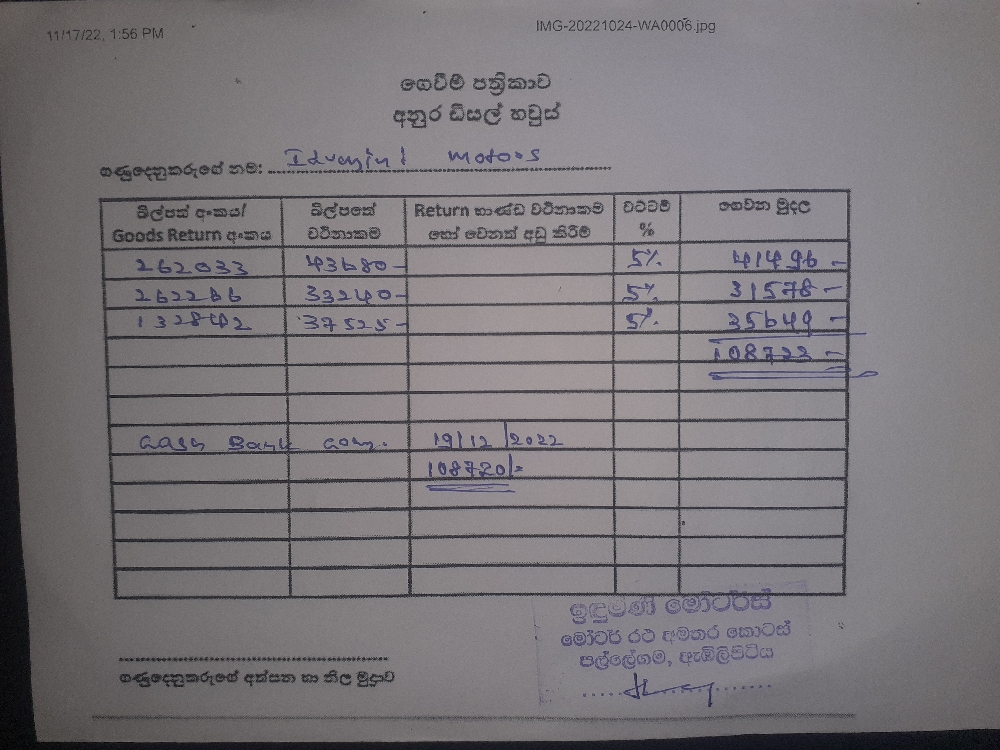 11/17/22, 1:56 PM
IMG-20221024-WA0006.jpg
ගෙවීම් පත්‍රිකාව
අනුර ඩීසල් හවුස්
ගණුදෙනුකරුගේ නම: motors
බිල්පත් අංකය/ Goods Return අංකය
බිල්පතේ වටිනාකම
Return භාණ්ඩ වටිනාකම හෝ වෙනත් අඩු කිරීම්
වට්ටම් %
ගෙවන මුදල
262033 43680- 5% 41496 -
262286 33240- 5% 31578 -
132842 37525- 5% 35649 -
108723 -
Cash Bank 19/12/2022
108720/=
ඉඳුමණි මෝටර්ස්
මෝටර් රථ අමතර කොටස්
පල්ලේගම, ඇඹිලිපිටිය
ගණුදෙනුකරුගේ අත්සන හා නිල මුද්‍රාව